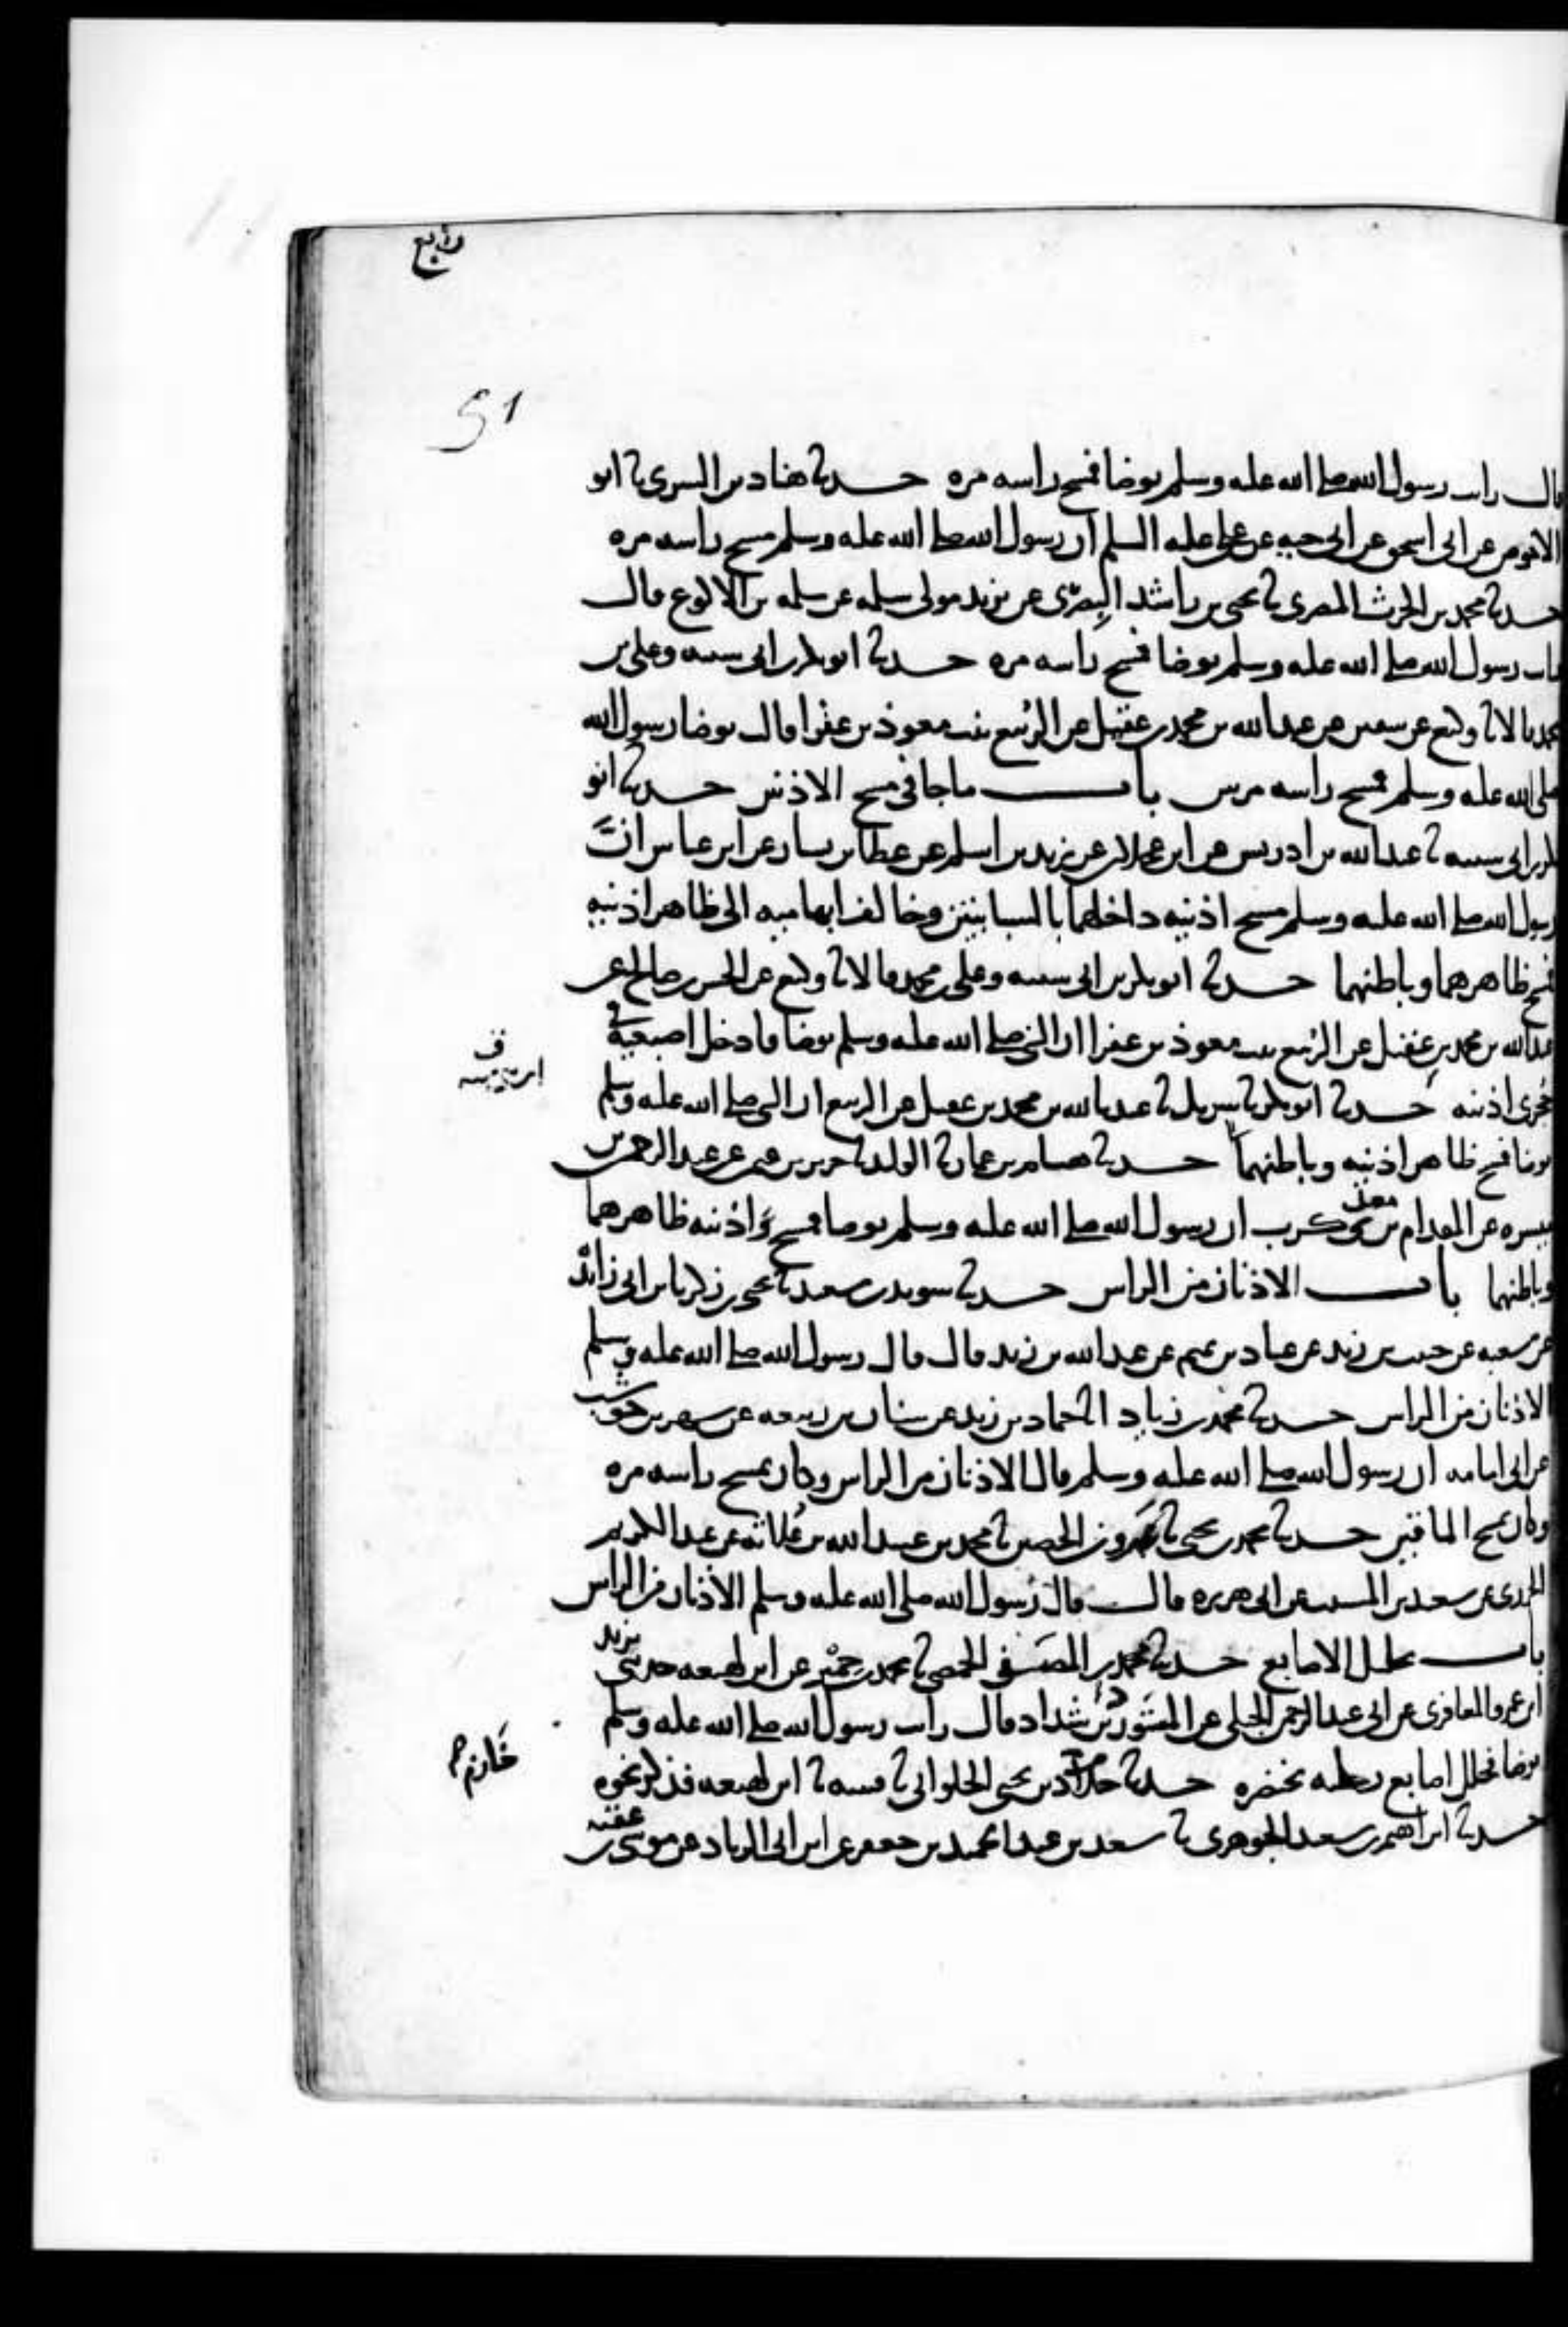 رابع
51
قال رايت رسول الله صلى الله عليه وسلم توضا فمسح راسه مره حدثنا هناد بن السري ثنا ابو
الاحوص عن ابي اسحق عن ابي حيه عن علي عليه السلم ان رسول الله صلى الله عليه وسلم مسح راسه مره
حدثنا محمد بن الحرث المصري ثنا يحيى بن راشد البصري عن يزيد مولى سلمه عن سلمه بن الاكوع قال
رايت رسول الله صلى الله عليه وسلم توضا فمسح راسه مره حدثنا ابو بكر بن ابي شيبه وعلي بن
محمد قالا ثنا وكيع عن سفين عن عبد الله بن محمد بن عقيل عن الربيع بنت معوذ بن عفرا قالت توضا رسول الله
صلى الله عليه وسلم فمسح راسه مرتين باب ما جا في مسح الاذنين حدثنا ابو
بكر بن ابي شيبه ثنا عبد الله بن ادريس عن ابن عجلان عن زيد بن اسلم عن عطا بن يسار عن ابن عباس ان
رسول الله صلى الله عليه وسلم مسح اذنيه داخلهما بالسبابتين وخالف ابهاميه الى ظاهر اذنيه
فمسح ظاهرهما وباطنهما حدثنا ابو بكر بن ابي شيبه وعلي بن محمد قالا ثنا وكيع عن الحسن بن صالح عن
عبد الله بن محمد بن عقيل عن الربيع بنت معوذ بن عفرا ان النبي صلى الله عليه وسلم توضا فادخل اصبعيه في
جحري اذنيه حدثنا ابو بكر ثنا شريك ثنا عبد الله بن محمد بن عقيل عن الربيع ان النبي صلى الله عليه وسلم
توضا فمسح ظاهر اذنيه وباطنهما حدثنا هشام بن عمار ثنا الوليد ثنا حريز بن عثمن عن عبد الرحمن بن
ميسره عن المقدام بن معدي كرب ان رسول الله صلى الله عليه وسلم توضا فمسح واذنيه ظاهرهما
وباطنهما باب الاذنان من الراس حدثنا سويد بن سعيد ثنا يحيى بن زكريا بن ابي زائده
عن شعبه عن حبيب بن زيد عن عباد بن تميم عن عبد الله بن زيد قال قال رسول الله صلى الله عليه وسلم
الاذنان من الراس حدثنا محمد بن زياد انا حماد بن زيد عن سنان بن ربيعه عن شهر بن حوشب
عن ابي امامه ان رسول الله صلى الله عليه وسلم قال الاذنان من الراس وكان يمسح راسه مره
وكان يمسح الماقين حدثنا محمد بن يحيى ثنا عمرو بن الحصين ثنا محمد بن عبد الله بن علاثه عن عبد الكريم
الجزري عن سعيد بن المسيب عن ابي هريره قال قال رسول الله صلى الله عليه وسلم الاذنان من الراس
باب تخليل الاصابع حدثنا محمد بن المصفى الحمصي ثنا محمد بن حمير عن ابن لهيعه حدثني يزيد
ابن عمرو المعافري عن ابي عبد الرحمن الحبلي عن المستورد بن شداد قال رايت رسول الله صلى الله عليه وسلم
توضا فخلل اصابع رجليه بخنصره حدثنا خلاد بن يحيى الحلواني ثنا قتيبه ثنا ابن لهيعه فذكر نحوه
خازم
حدثنا ابراهيم بن سعيد الجوهري ثنا سعد بن عبد الحميد بن جعفر عن ابن ابي الزناد عن موسى بن عقبه